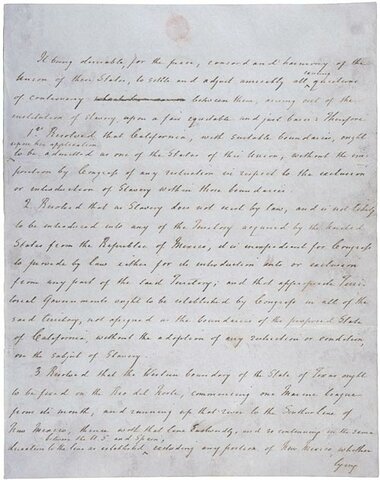 It being desirable, for the peace, concord and harmony of the
Union of these States, to settle and adjust amicably all existing questions
of controversy between them, arising out of the
institution of slavery, upon a fair equitable and just basis: Therefore
1st Resolved that California, with suitable boundaries, ought
upon her application
to be admitted as one of the States of this Union, without the im-
position by Congress of any restriction in respect to the exclusion
or introduction of Slavery within those boundaries.
2. Resolved that as Slavery does not exist by law, and is not likely
to be introduced into any of the Territory acquired by the United
States from the Republic of Mexico, it is inexpedient for Congress
to provide by law either for its introduction into or exclusion
from any part of the said Territory; and that appropriate Terri-
torial Governments ought to be established by Congress in all of the
said territory, not assigned as the boundaries of the proposed State
of California, without the adoption of any restriction or condition
on the subject of Slavery.
3. Resolved that the Western boundary of the State of Texas ought
to be fixed on the Rio del Norte, commencing one Marine league
from its mouth, and running up that river to the Southern line of
New Mexico, thence with that line Eastwardly, and so continuing in the same
between the U.S. and Spain,
direction to the line as established, excluding any portion of New Mexico, whether
lying